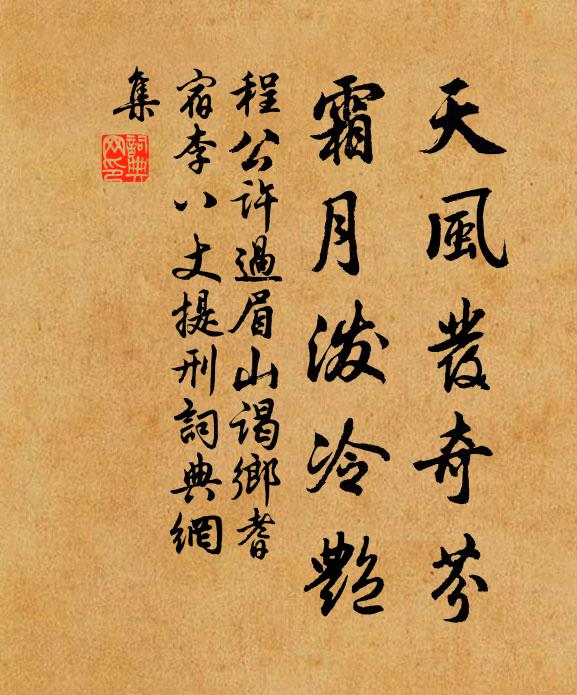 天風發奇芬
霜月泼冷艷
程公許過眉山謁鄉耆
宿李八丈提刑詞典網
集
詞典網印